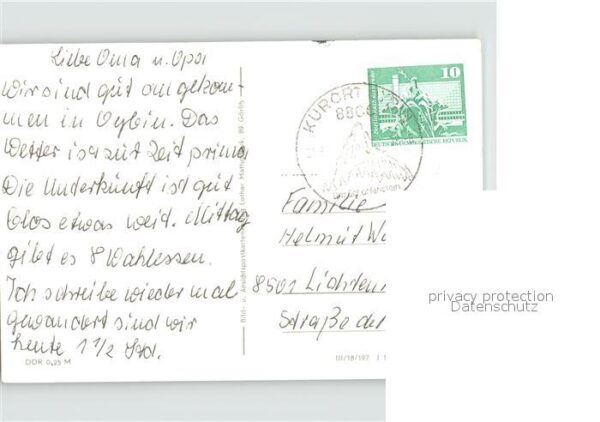 Liebe Oma u. Opa
Wir sind gut angekom-
men in Oybin. Das
Wetter ist zut Zeit prima
Die Unterkunft ist gut
blos etwas weit. Mittag
gibt es 8 Wahlessen.
Ich schreibe wieder mal
gewandert sind wir
heute 1 1/2 Std.
DDR 0,25 M
Bild- u. Ansichtspostkarten Lothar 89 Görlitz
10
DEUTSCHE DEMOKRATISCHE REPUBLIK
KURORT
880
Familie
Helmut
8501 Lichten
Straße de
III/18/197
privacy protection
Datenschutz